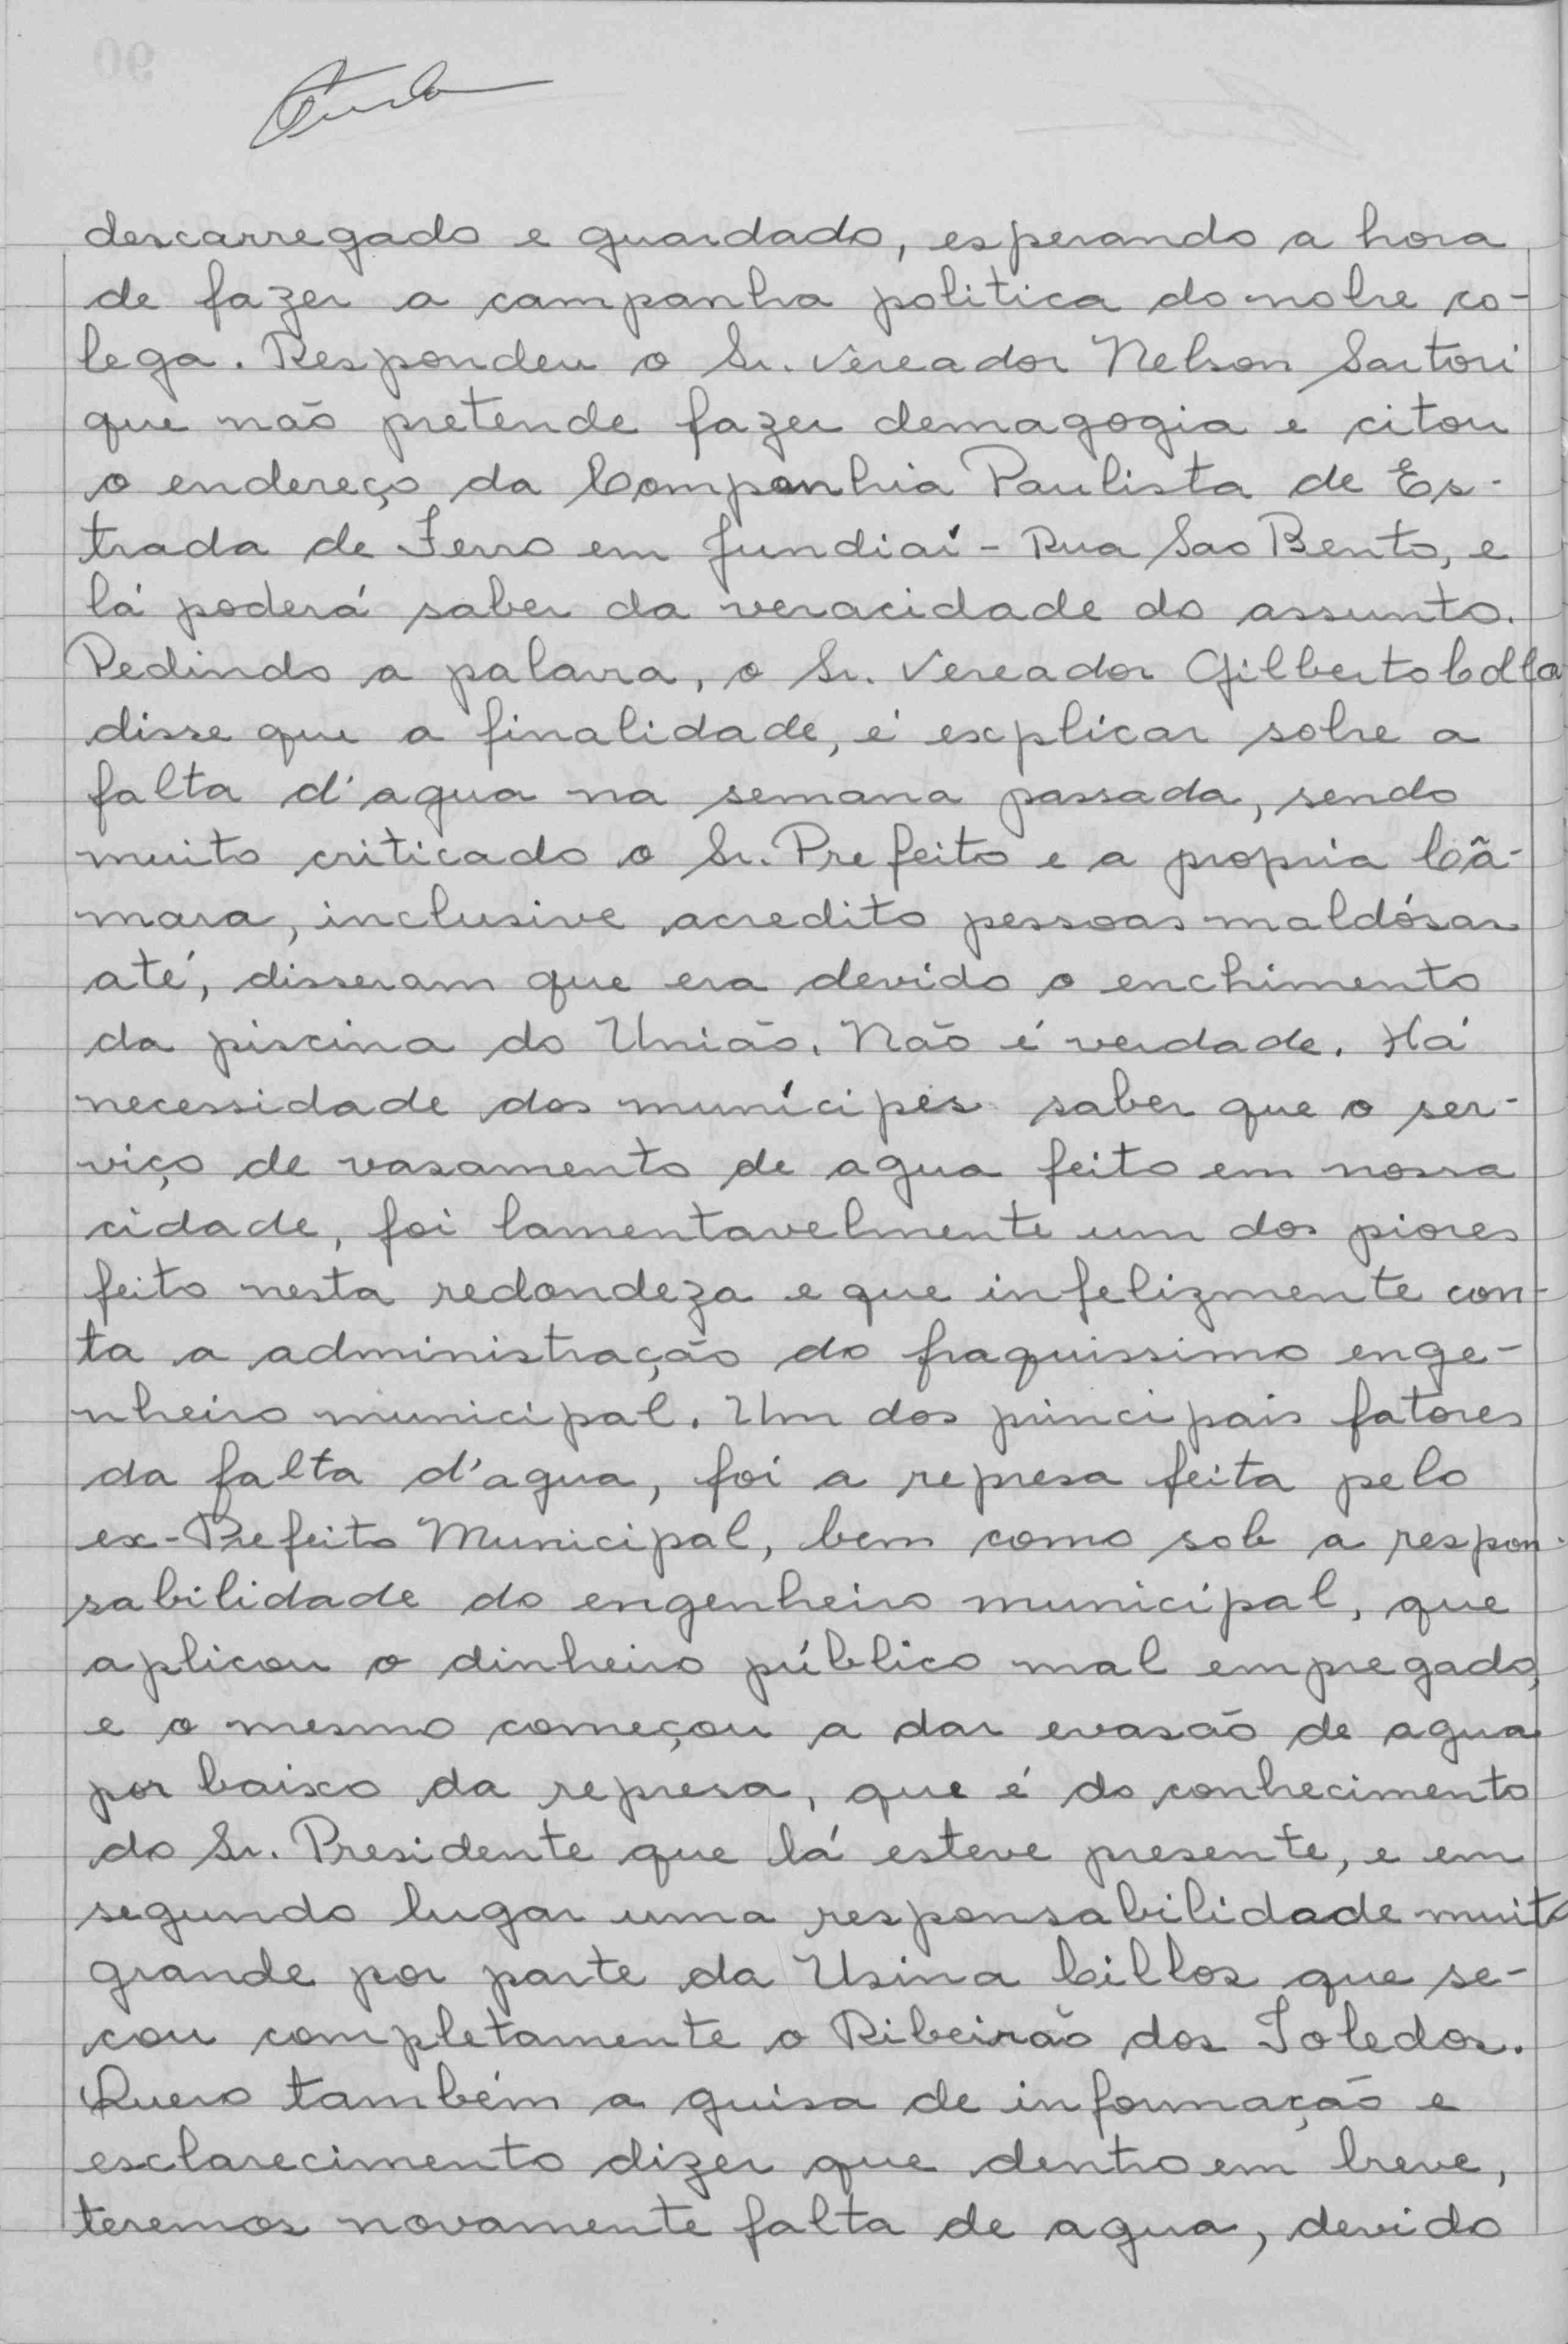 descarregado e guardado, esperando a hora
de fazer a campanha politica do nobre co-
lega. Respondeu o Sr. Vereador Nelson Sartori
que não pretende fazer demagogia e citou
o endereço da Companhia Paulista de Es-
trada de Ferro em Jundiaí - Rua Sao Bento, e
lá poderá saber da veracidade do assunto.
Pedindo a palavra, o Sr. Vereador Gilberto Colla
disse que a finalidade, é explicar sobre a
falta d'agua na semana passada, sendo
muito criticado o Sr. Prefeito e a propria Câ-
mara, inclusive acredito pessoas maldósas
até, disseram que era devido o enchimento
da piscina do União. Não é verdade. Há
necessidade dos munícipes saber que o ser-
viço de vasamento de agua feito em nossa
cidade, foi lamentavelmente um dos piores
feito nesta redondeza e que infelizmente con-
ta a administração do fraquissimo enge-
nheiro municipal. Um dos principais fatores
da falta d'agua, foi a represa feita pelo
ex-Prefeito Municipal, bem como sob a respon-
sabilidade do engenheiro municipal, que
aplicou o dinheiro público mal empregado,
e o mesmo começou a dar evasão de agua
por baixo da represa, que é do conhecimento
do Sr. Presidente que lá esteve presente, e em
segundo lugar uma responsabilidade muito
grande por parte da Usina Cillos que se-
cou completamente o Ribeirão dos Toledos.
Quero também a guisa de informação e
esclarecimento dizer que dentro em breve,
teremos novamente falta de agua, devido